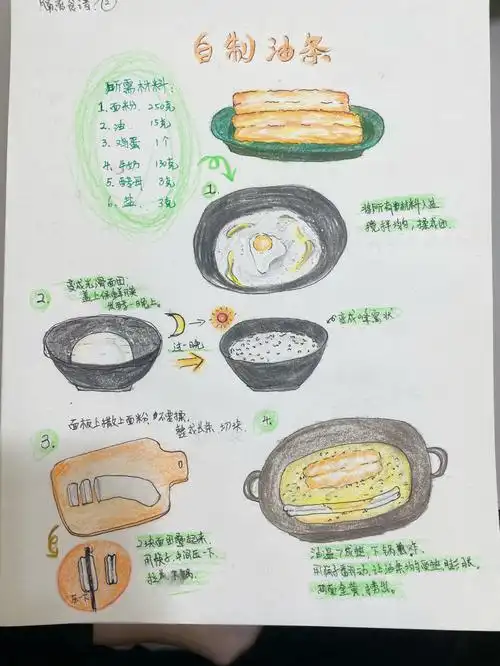 自制油条
所需材料:
1. 面粉 250克
2. 油 15克
3. 鸡蛋 1个
4. 牛奶 130克
5. 酵母 3克
6. 盐 3克
1.
将所有材料入盆
搅拌均匀,揉成团.
2.
变成光滑面团
盖上保鲜膜
发酵一晚上.
过一晚
变成蜂窝状
3.
面板上撒上面粉,不需揉,
整成长条 切块.
2块面团叠起来,
用筷子中间压一下,
拉长 下锅.
压下
4.
油温7成热,下锅煎炸.
用筷子翻动,让油条均匀受热膨胀.
两面金黄,